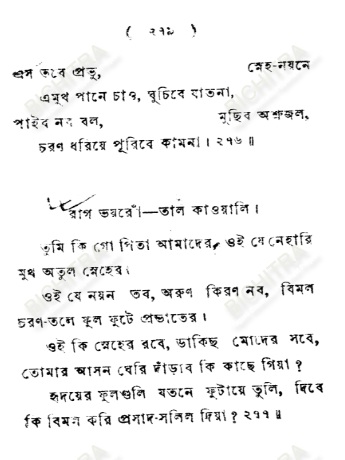 ( ২৭৯ )
এস তবে প্রভু, স্নেহ-নয়নে
এমুখ পানে চাও, ঘুচিবে যাতনা,
পাইব নব বল, মুছিব অশ্রুজল,
চরণ ধরিয়ে পূরিবে কামনা । ২৭৬ ॥
রাগ ভয়রোঁ—তাল কাওয়ালি ।
তুমি কি গো পিতা আমাদের, ওই যে নেহারি
মুখ অতুল স্নেহের ।
ওই যে নয়ন তব, অরুণ কিরণ নব, বিমল
চরণ-তলে ফুল ফুটে প্রভাতের ।
ওই কি স্নেহের রবে, ডাকিছ মোদের সবে,
তোমার আসন ঘেরি দাঁড়াব কি কাছে গিয়া ?
হৃদয়ের ফুলগুলি যতনে ফুটায়ে তুলি, দিবে
কি বিমল করি প্রসাদ-সলিল দিয়া ? ২৭৭ ॥